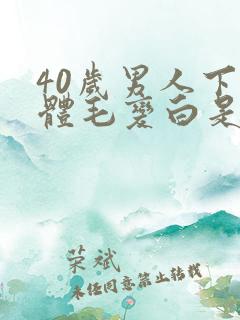 40歲男人下
體毛變白是
荣斌
未经同意禁止转载